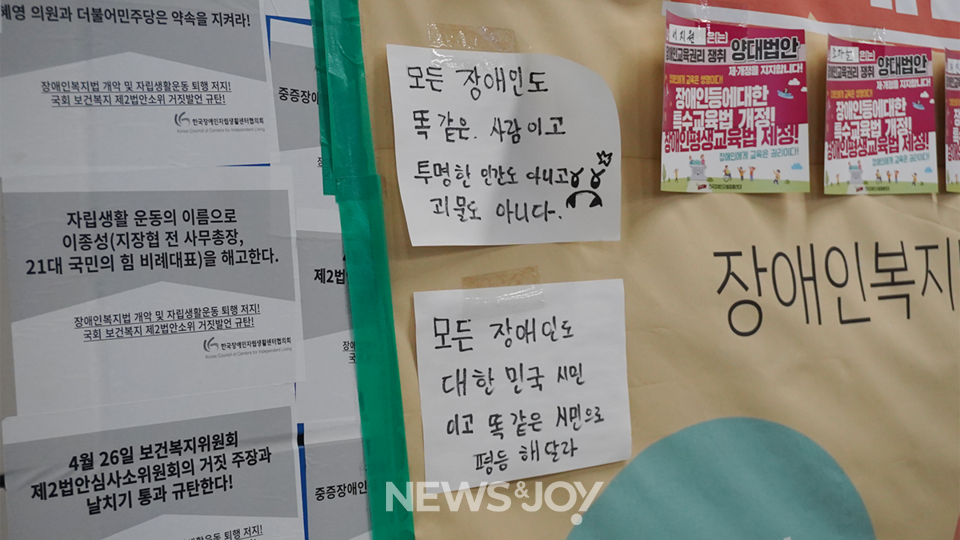 혜영 의원과 더불어민주당은 약속을 지켜라!
장애인복지법 개악 및 자립생활운동 퇴행 저지!
국회 보건복지 제2법안소위 거짓발언 규탄!
한국장애인자립생활센터협의회
Korea Council of Centers for Independent Living
자립생활 운동의 이름으로
이종성(지장협 전 사무총장,
21대 국민의 힘 비례대표)을 해고한다.
장애인복지법 개악 및 자립생활운동 퇴행 저지!
국회 보건복지 제2법안소위 거짓발언 규탄!
한국장애인자립생활센터협의회
Korea Council of Centers for Independent Living
4월 26일 보건복지위원회
제2법안심사소위원회의 거짓 주장과
날치기 통과 규탄한다!
활동 퇴행 저지!
중증장애인
장애
국
제2법
중증장애인
모든 장애인도
똑같은 사람이고
투명한 인간도 아니고
괴물도 아니다.
모든 장애인도
대한민국 시민
이고 똑같은 시민으로
평등해달라
은(는)
장애인교육권리 쟁취 양대법안
제·개정을 지지합니다!
장애인에게 교육은 생명이다!
장애인등에대한
특수교육법 개정!
장애인평생교육법 제정!
장애인에게 교육은 권리이다!
은(는)
장애인교육권리 쟁취 양대법안
제·개정을 지지합니다!
장애인등에대한
특수교육법 개정!
장애인평생교육법 제정!
장애인에게 교육은 권리이다!
장애인복지
NEWS&JOY